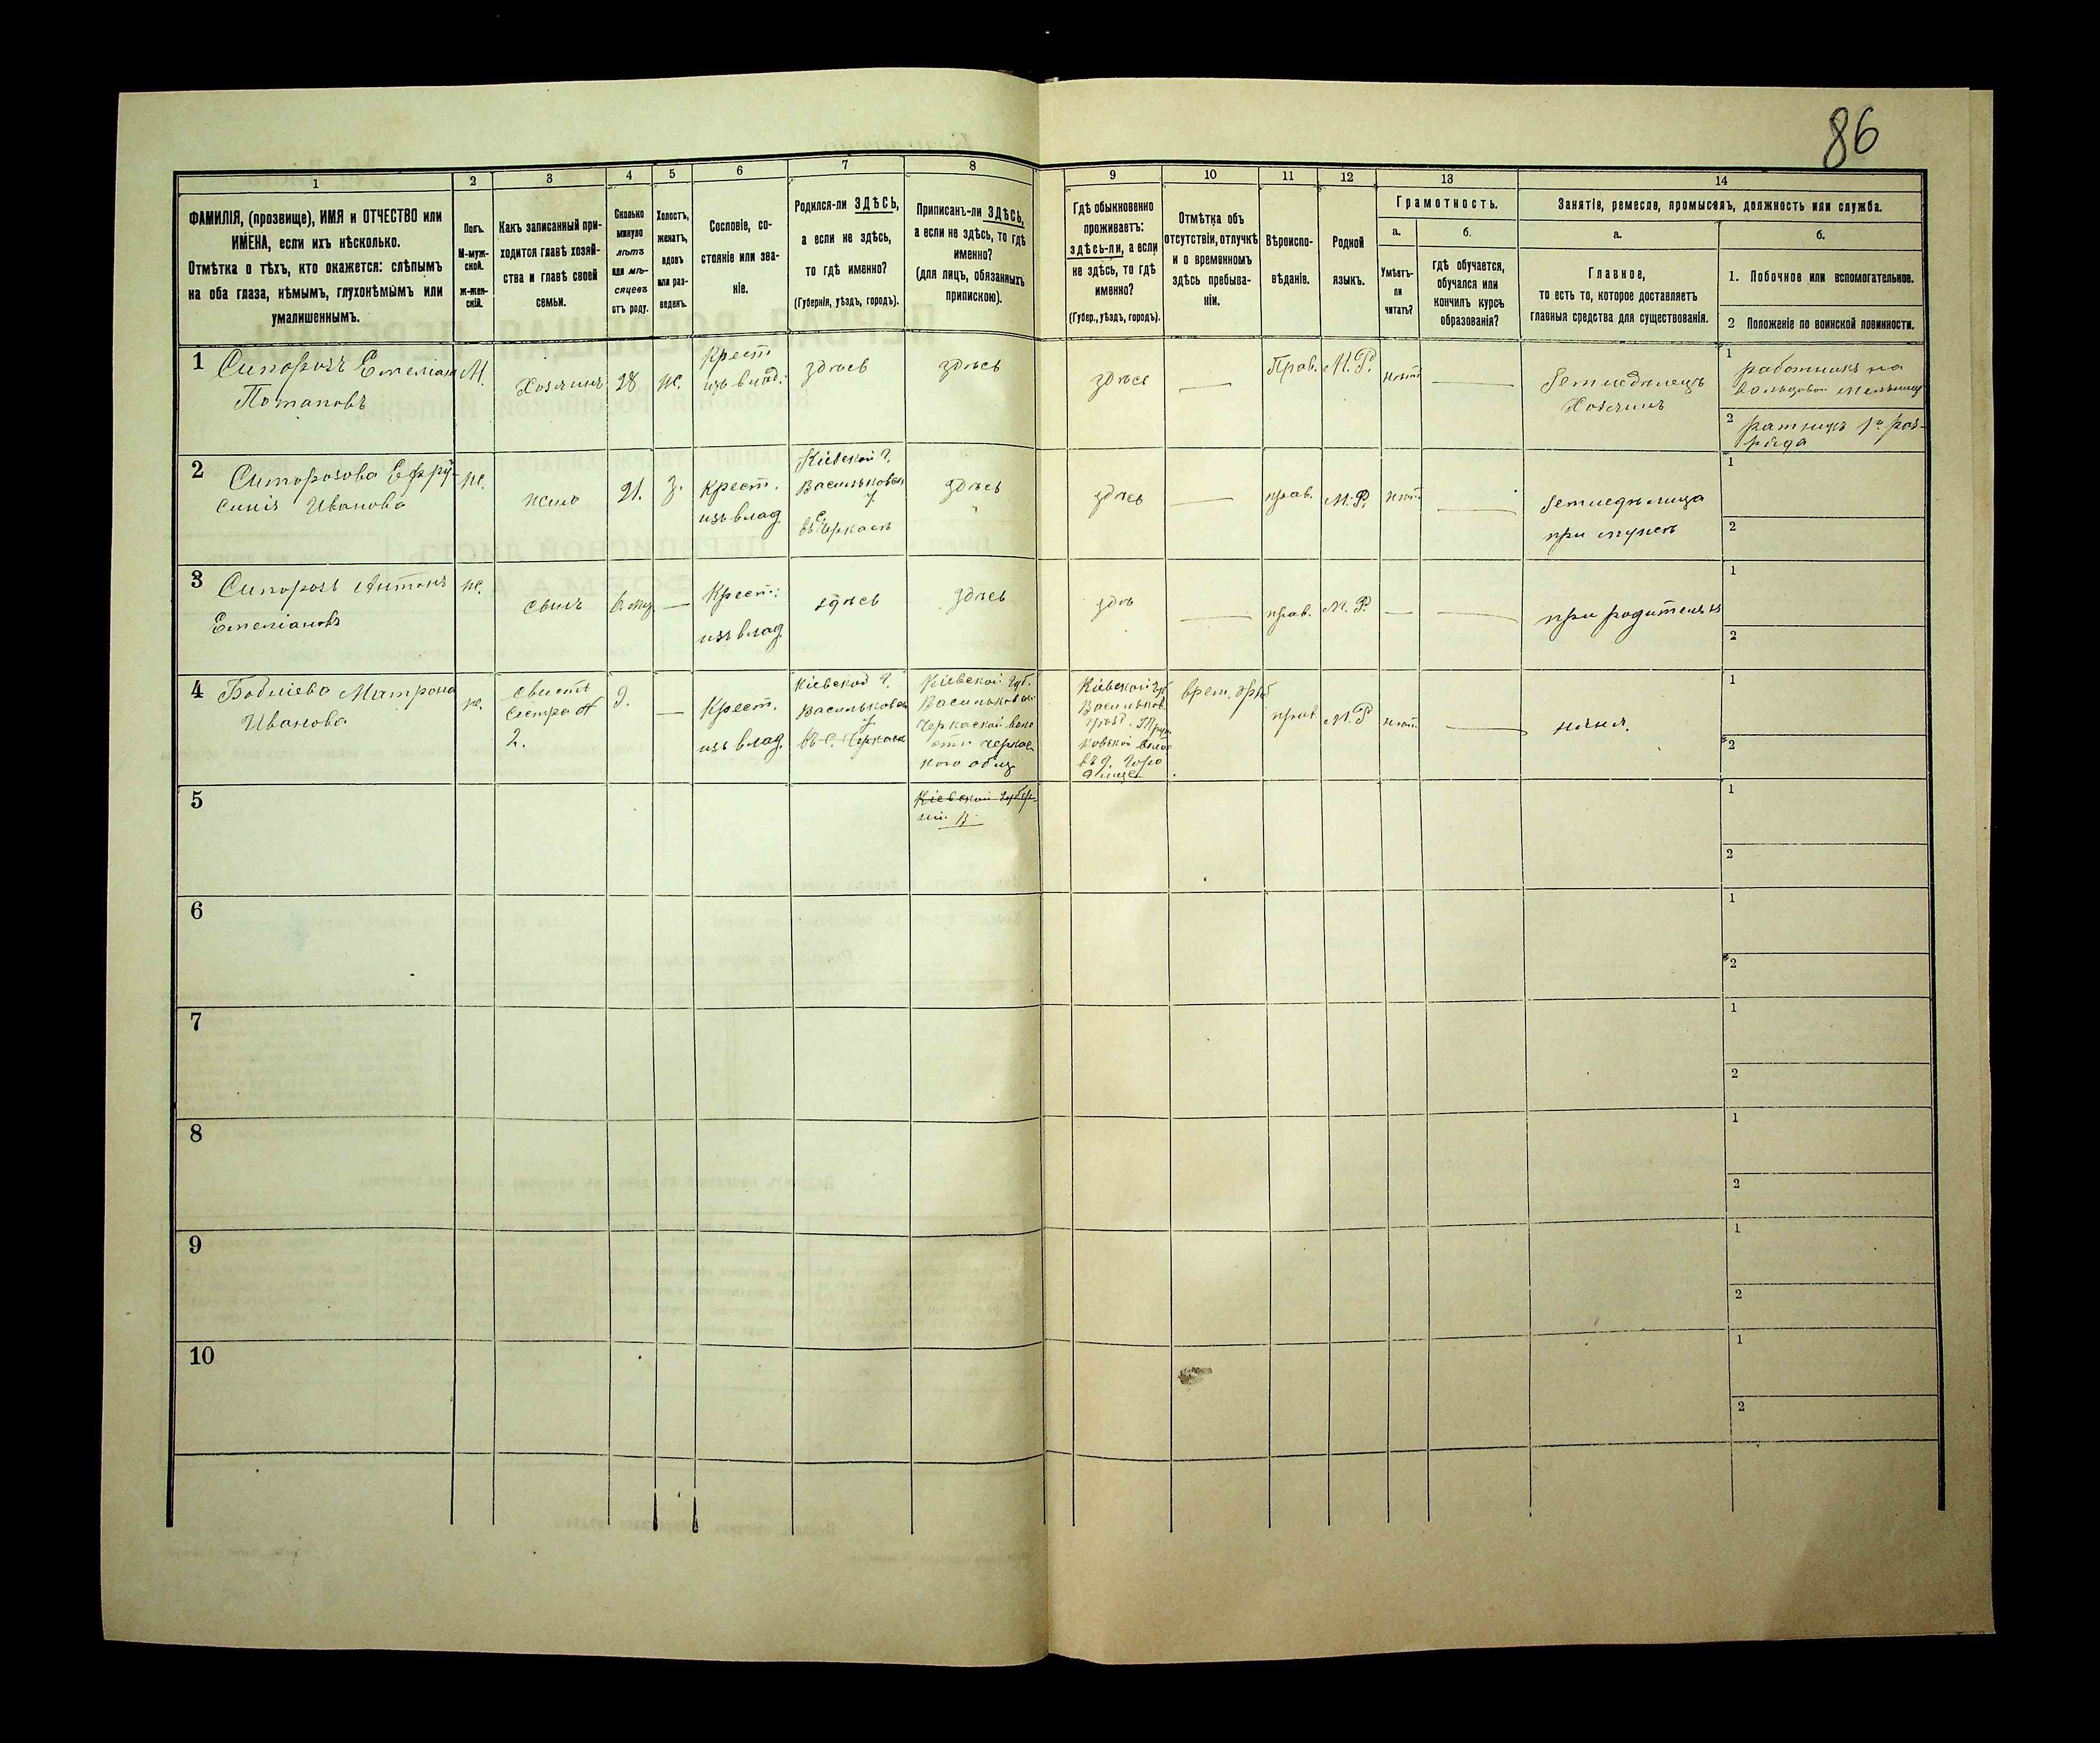 86
1
2
3
4
5
6
7
8
9
10
11
12
13
14
ФАМИЛІЯ, (прозвище), ИМЯ и ОТЧЕСТВО или
ИМЕНА, если ихъ нѣсколько.
Отмѣтка о тѣхъ, кто окажется: слѣпымъ
на оба глаза, нѣмымъ, глухонѣмымъ или
умалишеннымъ.
Полъ.
М-муж-
ской.
ж-жен-
скій.
Какъ записанный при-
ходится главѣ хозяй-
ства и главѣ своей
семьи.
Сколько
минуло
лѣтъ
или мѣ-
сяцевъ
отъ роду.
Холостъ,
женатъ,
вдовъ
или раз-
веденъ.
Сословіе, со-
стояніе или зва-
ніе.
Родился-ли ЗДѢСЬ,
а если не здѣсь,
то гдѣ именно?
(Губернія, уѣздъ, городъ).
Приписанъ-ли ЗДѢСЬ,
а если не здѣсь, то гдѣ
именно?
(для лицъ, обязанныхъ
припискою).
Гдѣ обыкновенно
проживаетъ:
здѣсь-ли, а если
не здѣсь, то гдѣ
именно?
(Губер., уѣздъ, городъ).
Отмѣтка объ
отсутствіи, отлучкѣ
и о временномъ
здѣсь пребыва-
ніи.
Вѣроиспо-
вѣданіе.
Родной
языкъ.
Грамотность.
а.
Умѣетъ-
ли
читать?
б.
Гдѣ обучается,
обучался или
кончилъ курсъ
образованія?
Занятіе, ремесло, промыселъ, должность или служба.
а.
Главное,
то есть то, которое доставляетъ
главныя средства для существованія.
б.
1. Побочное или вспомогательное.
2 Положеніе по воинской повинности.
1
Емеліанъ
Потаповъ
М.
Хозяинъ
28
ж.
Крест
изъ влад.
здѣсь
здѣсь
здѣсь
Прав.
М.Р.
нѣтъ
Земледѣлецъ
Хозяинъ
1
работникъ на
вальцовой мельницѣ
2
ратникъ 1го раз-
ряда
2
Ефру-
синія Иванова
ж.
жена
21.
З.
Крест.
изъ влад.
Кіевской г.
Васильковск
у.
въ с. Черкасъ
здѣсь
здѣсь
прав.
М.Р.
нѣтъ
Земледѣлица
при мужѣ
1
2
3
Антонъ
Емеліановъ
сынъ
6 мц
Крест.
изъ влад.
здѣсь
здѣсь
прав.
М.Р.
при родителяхъ
1
2
4
Матрона
Иванова
ж.
Сестра
2.
9.
Крест.
изъ влад.
Кіевской г.
Васильковск
у.
въ с. Черкасъ
Кіевской Губ.
Васильков
Черкаской воло
сти Черкас
кого общ
Кіевской Губ
Васильков.
въ д. Горо
дище
прав
М.Р
нѣтъ.
няня.
1
2
5
Кіевской Губер-
ніи В
1
2
6
1
2
7
1
2
8
1
2
9
1
2
10
1
2